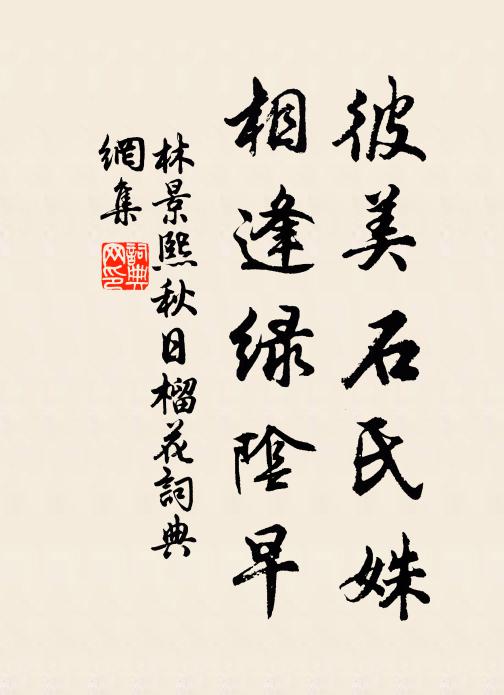 彼美石氏姝
相逢緑陰早
林景熙秋日榴花詞典
網集
詞典
网印